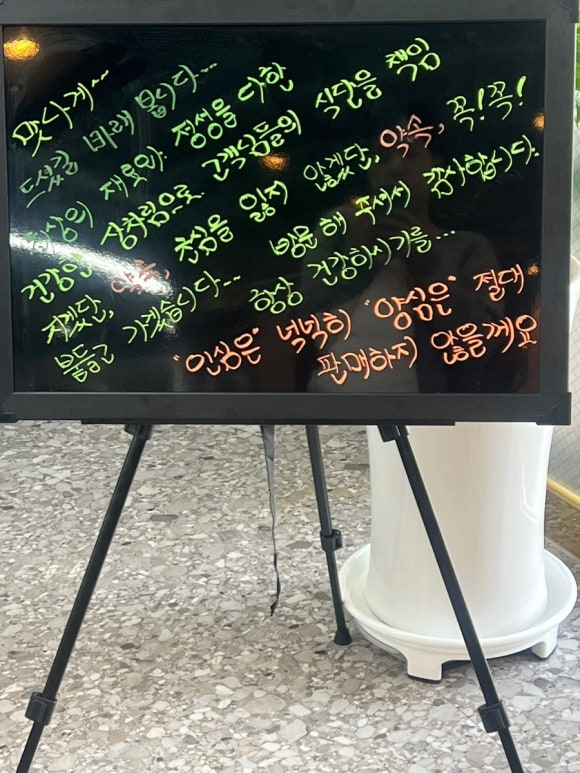 맛나게~~
드셨길 바래 봅니다...
최상의 재료와 정성을 다한
건강한 상차림으로 고객님들의 식단을 책임
지겠단, 약속, 초심을 잃지 않겠단, 약속, 꼭! 꼭!
붙들고 가겠습니다... 방문해 주셔서 감사합니다.
항상 건강하시기를...
"인심은" 넉넉히 "양심은" 절대
판매하지 않을께요